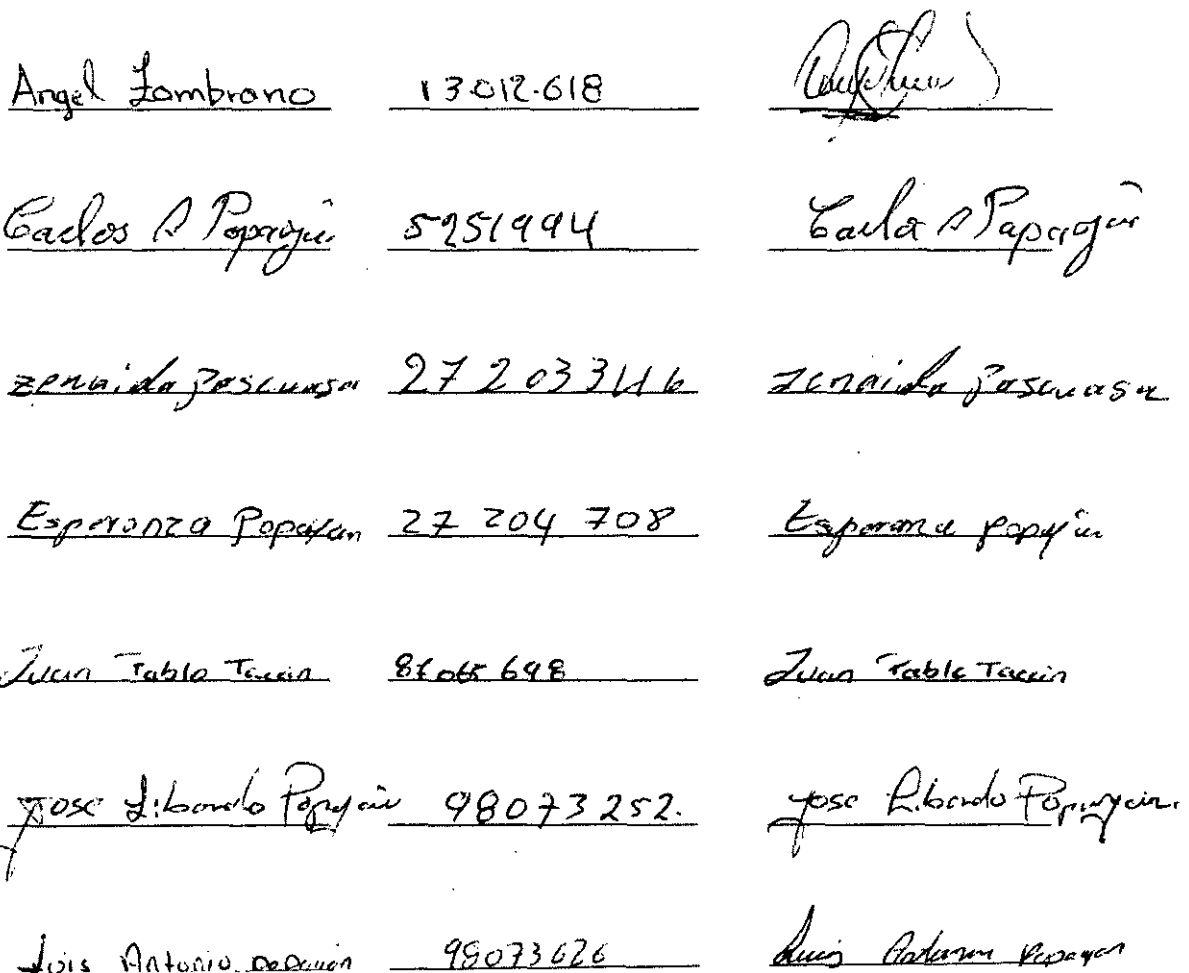 Angel Zambrano 13.012.618
Carlos A Popayán 5251994 Carlos A Papayán
zenaida Pascuasa 27203346 zenaida Pascuasa
Esperanza Popayan 27 204 708 Esperanza popayán
Juan Pablo 698 Juan Pablo
Jose Libardo Popayán 98073252. Jose Libardo Popayán.
Luis Antonio popayán 98073626 Luis Antonio Popayan